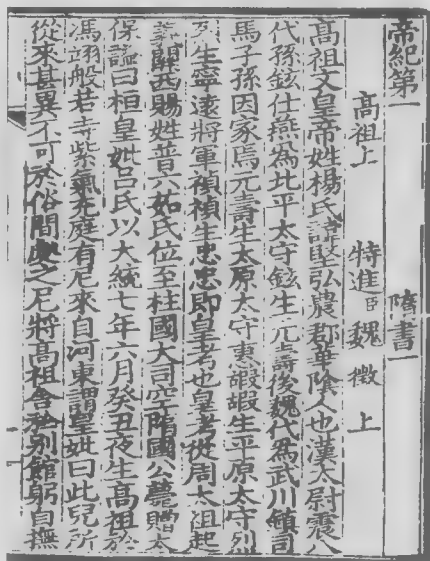 帝紀第一 隋書一
高祖上 特進臣魏徵上
高祖文皇帝姓楊氏諱堅弘農郡華隂人也漢太尉震八
代孫鉉仕燕爲北平太守鉉生元壽後魏代爲武川鎮司
馬子孫因家焉元壽生太原太守惠嘏嘏生平原太守烈
烈生寧遠將軍禎禎生忠忠即皇考也皇考從周太祖起
義關西賜姓普六如氏位至柱國大司空隋國公薨贈太
保謚曰桓皇妣吕氏以大統七年六月癸丑夜生高祖於
馮翊般若寺紫氣充庭有尼來自河東謂皇妣曰此兒所
從來甚異不可於俗間處之尼將高祖舍於别館躬自撫